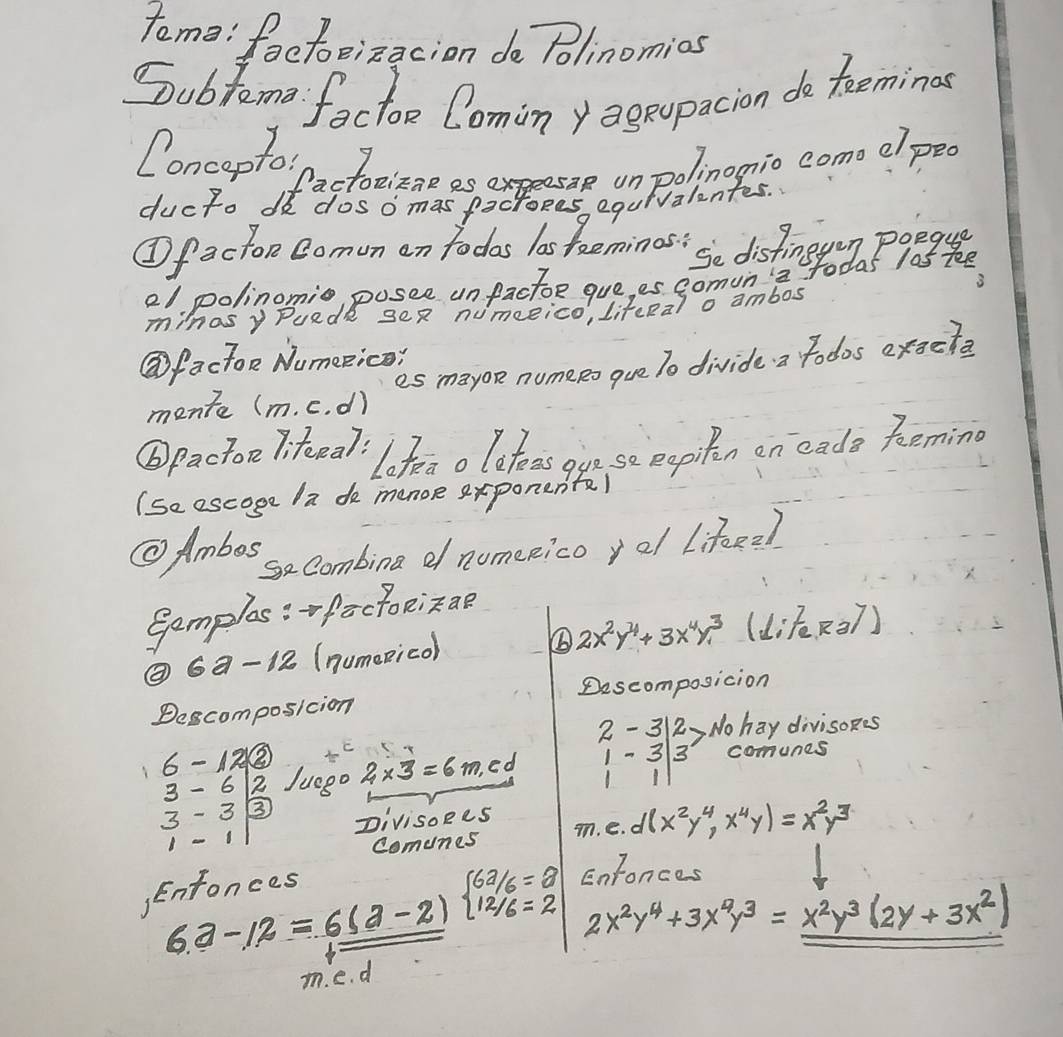 Tema: factorizacion de Polinomios
Subtema: factor Común y agrupacion de terminos
Concepto: factorizar es expresar un polinomio como el pro
ducto de dos ó mas factores equivalentes.
① factor Comun en todos los terminos: Se distinguen porque
el polinomio, posee un factor que, es comun a todos los ter
minos y Puede ser numerico, literal o ambos
ⓐ factor Numerico: es mayor numero que lo divide a todos exacta
mente (m.c.d)
ⓑ factor literal: letra o letras que se repiten en cada termino
(se escoge la de menor exponente)
ⓒ Ambos se combina el numerico y el Literal
Ejemplos: → factorizar
ⓐ 6a - 12 (numerico)
Descomposicion
6 - 12 | ②
3 - 6 | 2
3 - 3 | ③
1 - 1 |
luego 2 x 3 = 6 m.c.d
Divisores
Comunes
Entonces
6a - 12 = 6(a - 2) { 6a/6 = a
12/6 = 2
m.c.d
ⓑ 2x²y⁴ + 3x⁴y³ (literal)
Descomposicion
2 - 3 | 2 > No hay divisores
1 - 3 | 3 comunes
1 1 |
m.c.d(x²y⁴, x⁴y) = x²y³
Entonces ↓
2x²y⁴ + 3x⁴y³ = x²y³(2y + 3x²)